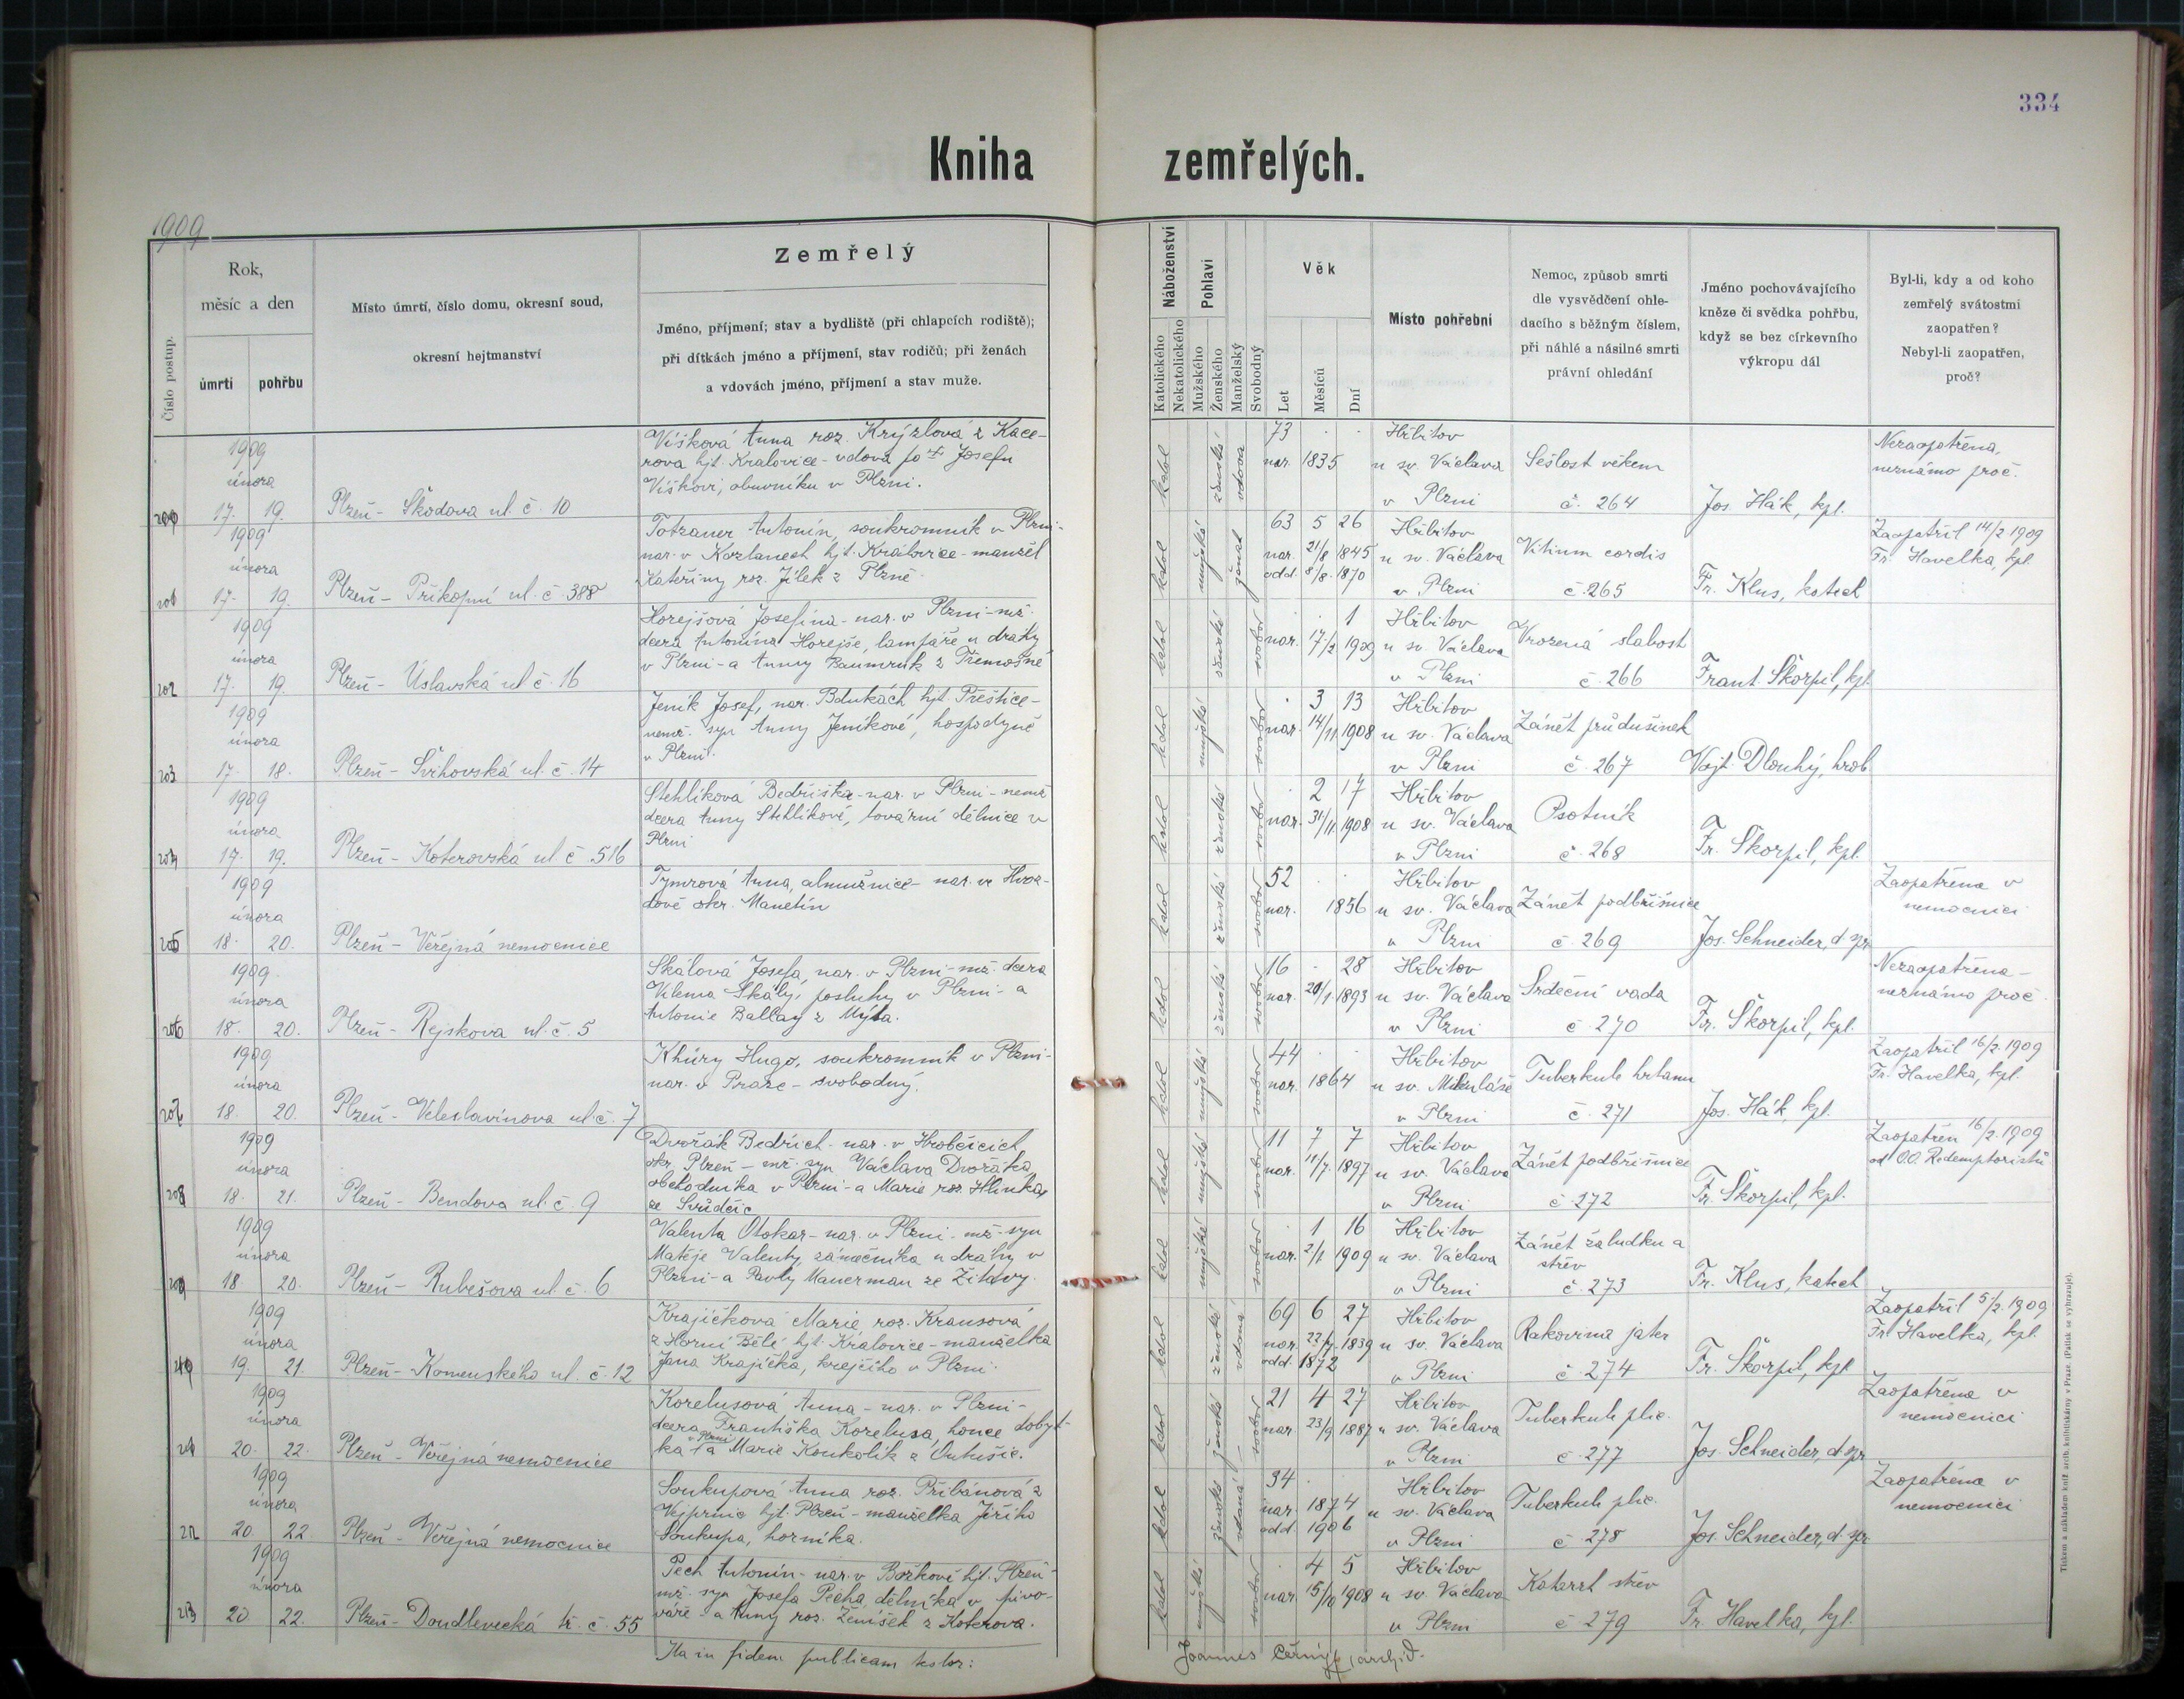 334
Kniha zemřelých.
1909
Číslo postup.
Rok,
měsíc a den
úmrtí
pohřbu
Místo úmrtí, číslo domu, okresní soud,
okresní hejtmanství
Zemřelý
Jméno, příjmení; stav a bydliště (při chlapcích rodiště);
při dítkách jméno a příjmení, stav rodičů; při ženách
a vdovách jméno, příjmení a stav muže.
Náboženství
Katolického
Nekatolického
Pohlaví
Mužského
Ženského
Manželský
Svobodný
Věk
Let
Měsíců
Dní
Místo pohřební
Nemoc, způsob smrti
dle vysvědčení ohle-
dacího s běžným číslem,
při náhlé a násilné smrti
právní ohledání
Jméno pochovávajícího
kněze či svědka pohřbu,
když se bez církevního
výkropu dál
Byl-li, kdy a od koho
zemřelý svátostmi
zaopatřen?
Nebyl-li zaopatřen,
proč?
200
1909
února
17. 19.
Plzeň - Škodova ul. č. 10
Víšková Anna roz. Krýzlová z Kace-
rova hjt. Kralovice - vdova po † Josefu
Víškovi, obuvníku v Plzni.
katol ženské vdova
73 . .
nar. 1835
Hřbitov
u sv. Václava
v Plzni
Sešlost věkem
č. 264
Jos. Hák, kpl.
Nezaopatřena,
neznámo proč.
201
1909
února
17. 19.
Plzeň - Příkopní ul. č. 388
Totzauer Antonín, soukromník v Plzni-
nar. v Kozlanech hjt. Kralovice - manžel
Kateřiny roz. Jílek z Plzně.
katol mužské ženat
63 5 26
nar. 21/8 1845
odd. 8/8. 1870
Hřbitov
u sv. Václava
v Plzni
Vitium cordis
č. 265
Fr. Klus, katech
Zaopatřil 14/2 1909
Fr. Havelka, kpl.
202
1909
února
17. 19.
Plzeň - Úslavská ul č. 16
Horejšová Josefína - nar. v Plzni - mž.
dcera Antonína Horejše, lampáře u dráhy
v Plzni - a Anny Baumruk z Třemošné
katol ženské svobod
. . 1
nar. 17./2 1909
Hřbitov
u sv. Václava
v Plzni
Vrozená slabost
č. 266
Frant. Škorpil, kpl.
203
1909
února
17. 18.
Plzeň - Švihovská ul. č. 14
Jeník Josef, nar. Bdukách hjt. Přeštice -
nemž. syn Anny Jeníkové, hospodyně
v Plzni.
katol mužské svobod
. 3 13
nar. 14/11 1908
Hřbitov
u sv. Václava
v Plzni
Zánět průdušinek
č. 267
Vojt. Dlouhý, hrob.
204
1909
února
17. 19.
Plzeň - Koterovská ul. č. 516
Stehlíková Bedřiška - nar. v Plzni - nemž
dcera Anny Stehlíkové, tovární dělnice v
Plzni
katol ženské svobod
. 2 17
nar. 31/11 1908
Hřbitov
u sv. Václava
v Plzni
Psotník
č. 268
Fr. Škorpil, kpl.
205
1909
února
18. 20.
Plzeň - Veřejná nemocnice
Tymrová Anna, almužnice - nar. ve Hvoz-
dově okr. Manetín
katol ženské svobod
52 . .
nar. 1856
Hřbitov
u sv. Václava
v Plzni
Zánět podbřišnice
č. 269
Jos. Schneider, d. spr.
Zaopatřena v
nemocnici
206
1909.
února
18. 20.
Plzeň - Rejskova ul. č. 5
Skálová Josefa, nar. v Plzni - mž. dcera
Viléma Skály, posluhy v Plzni - a
Antonie Ballay z Mýta.
katol ženské svobod
16 . 28
nar. 1893
Hřbitov
u sv. Václava
v Plzni
Srdeční vada
č. 270
Fr. Škorpil, kpl.
Nezaopatřena -
neznámo proč.
207
1909
února
18. 20.
Plzeň - Veleslavínova ul. č. 7
Khúry Hugo, soukromník v Plzni-
nar. v Praze - svobodný.
katol mužské svobod
44 . .
nar. 1864
Hřbitov
u sv. Mikuláše
v Plzni
Tuberkule hrtanu
č. 271
Jos. Hák, kpl.
Zaopatřil 16/2. 1909
Fr. Havelka, kpl.
208
1909
února
18. 21.
Plzeň - Bendova ul. č. 9
Dvořák Bedřich - nar. v Hrobčicích
okr. Plzeň - mž. syn Václava Dvořáka
obchodníka v Plzni - a Marie roz. Hlinka
ze Sviděic
katol mužské svobod
11 7 7
nar. 11/7. 1897
Hřbitov
u sv. Václava
v Plzni
Zánět podbřišnice
č 272
Fr. Škorpil, kpl.
Zaopatřen 16/2. 1909
od O.O. Redemptoristů
209
1909
února
18 20.
Plzeň - Rubešova ul. č. 6
Valenta Otokar - nar. v Plzni - mž. syn
Matěje Valenty, zámečníka u dráhy v
Plzni - a Pavly Mauerman ze Žitavy.
katol mužské svobod
. 1 16
nar. 2/1 1909
Hřbitov
u sv. Václava
v Plzni
Zánět žaludku a
střev
č. 273
Fr. Klus, katech
210
1909
února
19. 21.
Plzeň - Komenského ul. č. 12
Krajíčková Marie roz. Krausová
z Horní Bělé hjt. Kralovice - manželka
Jana Krajíčka, krejčího v Plzni.
katol ženské vdaná
69 6 27
nar. 1839
odd. 1872
Hřbitov
u sv. Václava
v Plzni
Rakovina jater
č. 274
Fr. Škorpil, kpl
Zaopatřil 5/2. 1909
Fr. Havelka, kpl.
211
1909
února
20. 22.
Plzeň - Veřejná nemocnice
Korelusová Anna - nar. v Plzni -
dcera Františka Korelusa, honce dobyt-
ka v Plzni a Marie Koukolík z Outušic.
katol ženské svobod
21 4 27
nar. 23/9 1887
Hřbitov
u sv. Václava
v Plzni
Tuberkule plic.
č. 277
Jos. Schneider, d. spr
Zaopatřena v
nemocnici
212
1909
února
20. 22.
Plzeň - Veřejná nemocnice
Soukupová Anna roz. Přibáňová z
Vejprnic hjt. Plzeň - manželka Jiřího
Soukupa, horníka.
katol ženské vdaná
34 . .
nar. 1874
odd. 1906
Hřbitov
u sv. Václava
v Plzni
Tuberkule plic.
č 278
Jos. Schneider, d. spr
Zaopatřena v
nemocnici
213
1909
února
20 22.
Plzeň - Doudlevecká tř. č. 55
Pech Antonín - nar. v Božkově hjt. Plzeň -
mž. syn Josefa Pecha, dělníka v pivo-
váře - a Anny roz. Ženíšek z Koterova.
katol mužské svobod
. 4 5
nar. 15/10 1908
Hřbitov
u sv. Václava
v Plzni
Katarrh střev
č 279
Fr. Havelka, kpl.
Ita in fidem publicam testor:
Joannes Černý, archid.
Tiskem a nákladem kníž. arcib. knihtiskárny v Praze. (Patisk se vyhrazuje).